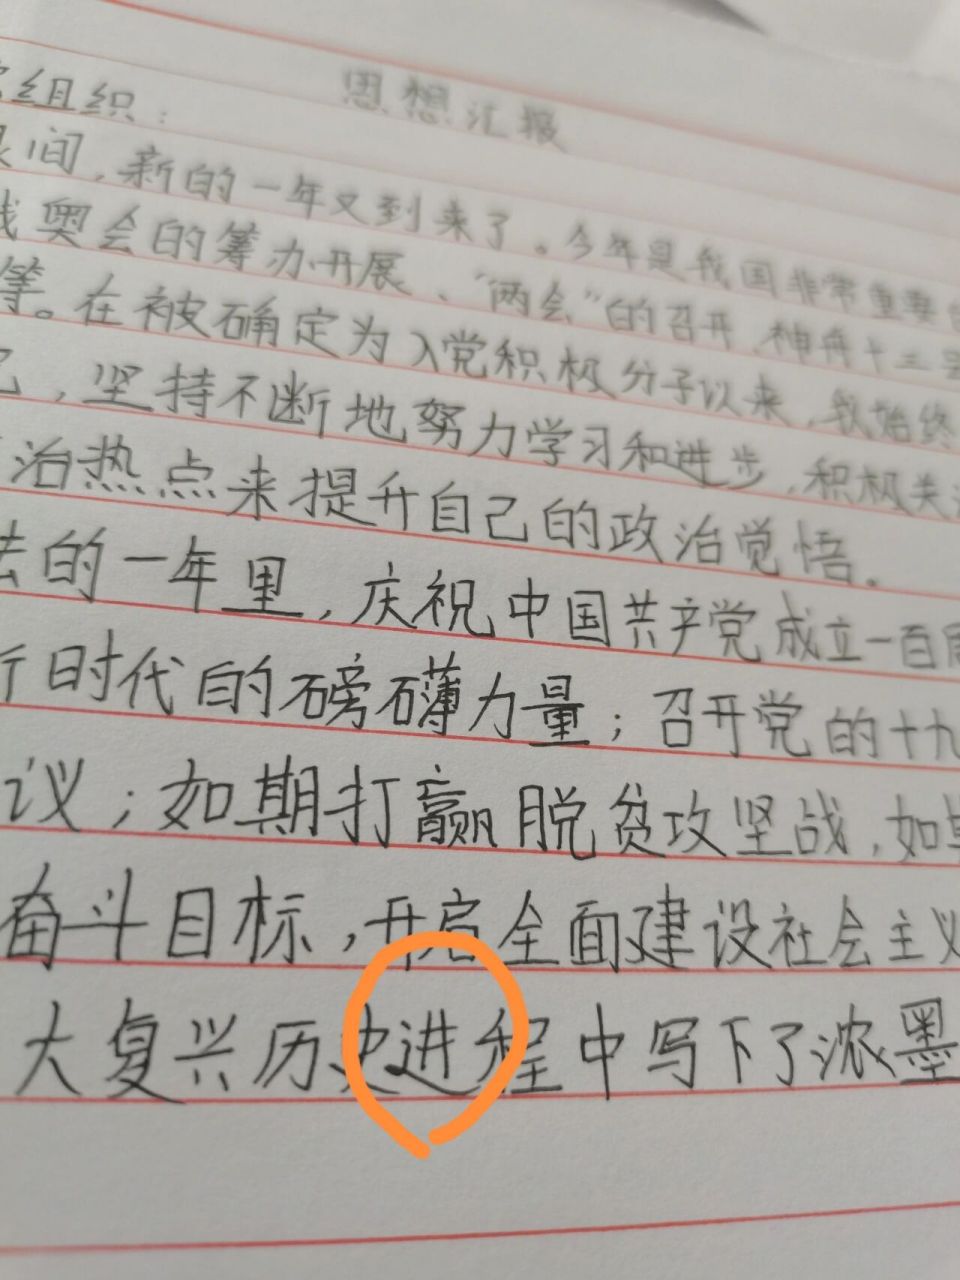 思想汇报
组织:
间,新的一年又到来了。今年是我国非常重要
奥会的筹办开展、“两会”的召开、神舟十三
等。在被确定为入党积极分子以来,我始终
,坚持不断地努力学习和进步,积极关
治热点来提升自己的政治觉悟。
的一年里,庆祝中国共产党成立一百
时代的磅礴力量;召开党的十九
议;如期打赢脱贫攻坚战,如
奋斗目标,开启全面建设社会主义
大复兴历史进程中写下了浓墨